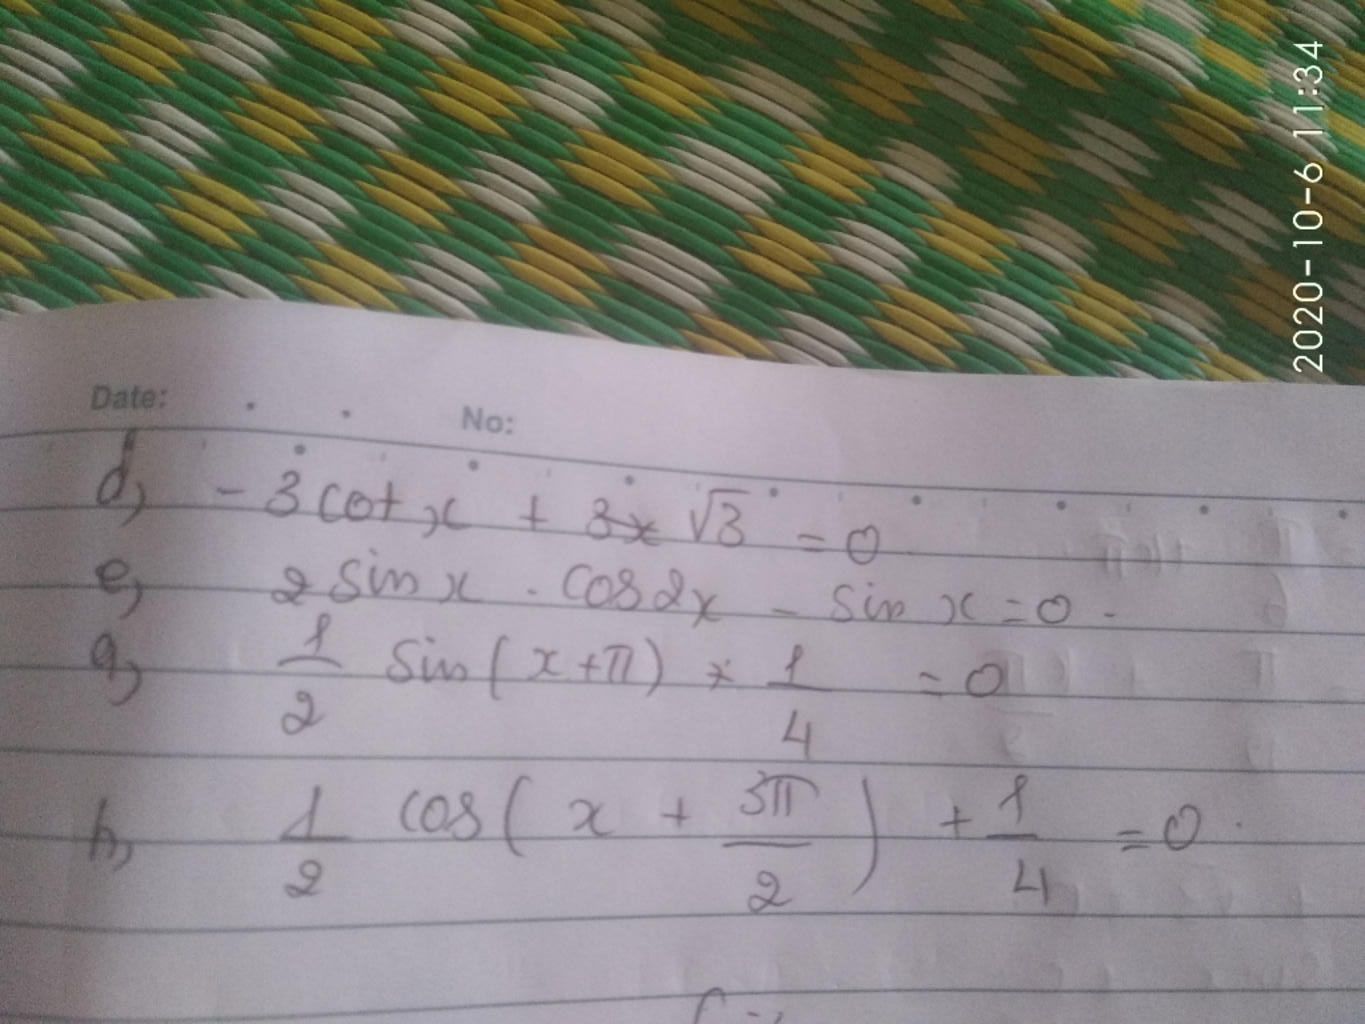 2020-10-6 11:34
Date:
No:
d, - 3 cot x + 3x √3 = 0
e, 2 sin x . cos 2x - sin x = 0 .
g, 1/2 sin ( x + π ) + 1/4 = 0
h, 1/2 cos ( x + 3π/2 ) + 1/4 = 0 .